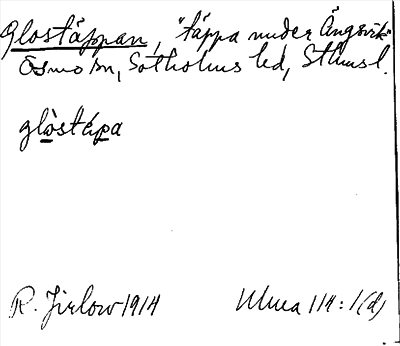 Glostäppan, "täppa under Ängsvik"
Ösmo sn, Sotholms hd, Sthmsl.
glòstápa
R. Jirlow 1914
Ulma 114:1(d)